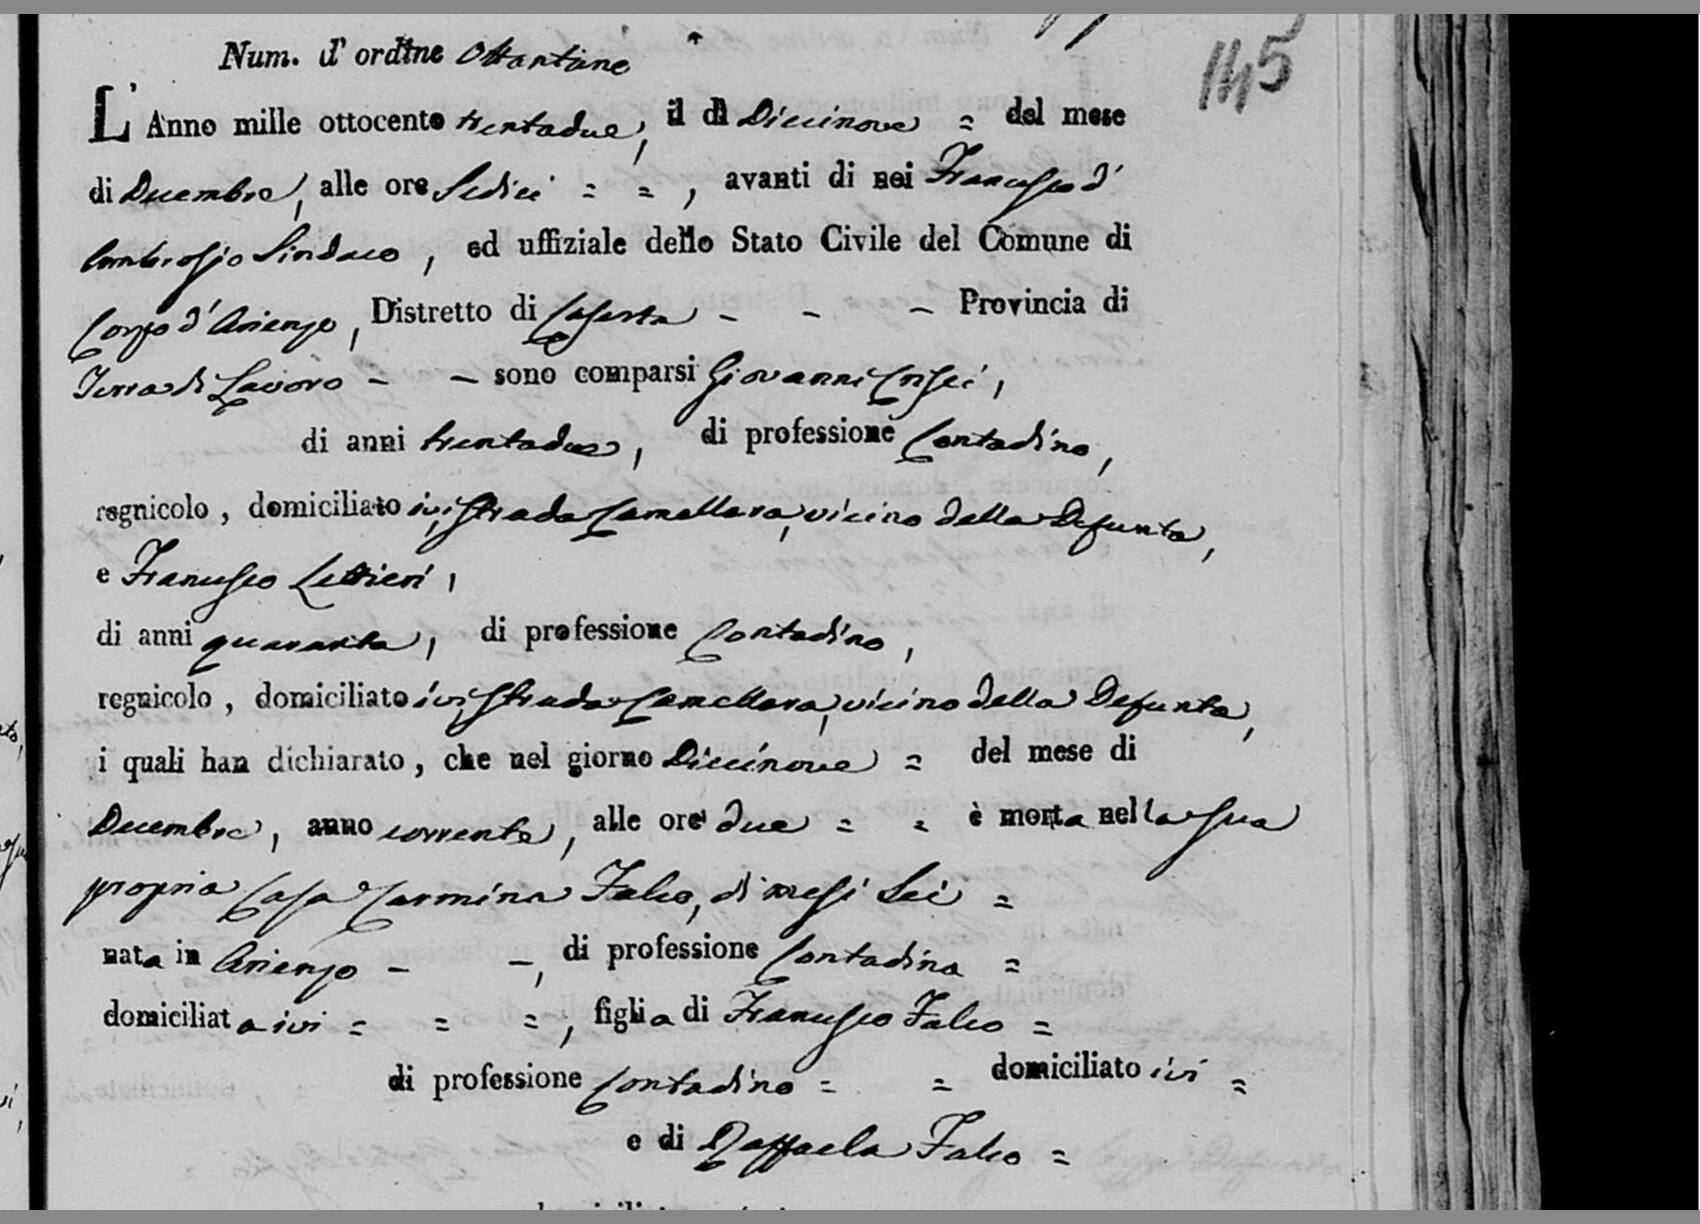 145
Num. d'ordine Ottantuno
L'Anno mille ottocento trentadue, il dì Diecinove = del mese
di Decembre, alle ore Sedici = = , avanti di noi Francesco d'
Ambrosio Sindaco, ed uffiziale dello Stato Civile del Comune di
Corpo d'Arienzo, Distretto di Caserta - - - Provincia di
Terra di Lavoro - - sono comparsi Giovanni Crisci,
di anni trentadue, di professione Contadino,
regnicolo, domiciliato ivi, strada Camellara, vicino della Defunta,
e Francesco Lettieri,
di anni quaranta, di professione Contadino,
regnicolo, domiciliato ivi, strada Camellara, vicino della Defunta,
i quali han dichiarato, che nel giorno Diecinove = del mese di
Decembre, anno corrente, alle ore due = = è morta nella sua
propria Casa Carmina Falco, di mesi Sei =
nata in Arienzo - -, di professione Contadina =
domiciliata ivi = = =, figlia di Francesco Falco =
di professione Contadino = = domiciliato ivi =
e di Raffaela Falco =